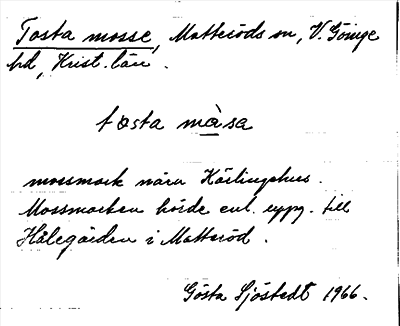 Tosta mosse, Matteröds sn, V. Göinge
hd, Krist. län.
tosta måsa
mossmark nära Kärlingehus.
Mossmarken hörde enl. uppg. till
Hålegården i Matteröd.
Gösta Sjöstedt 1966.